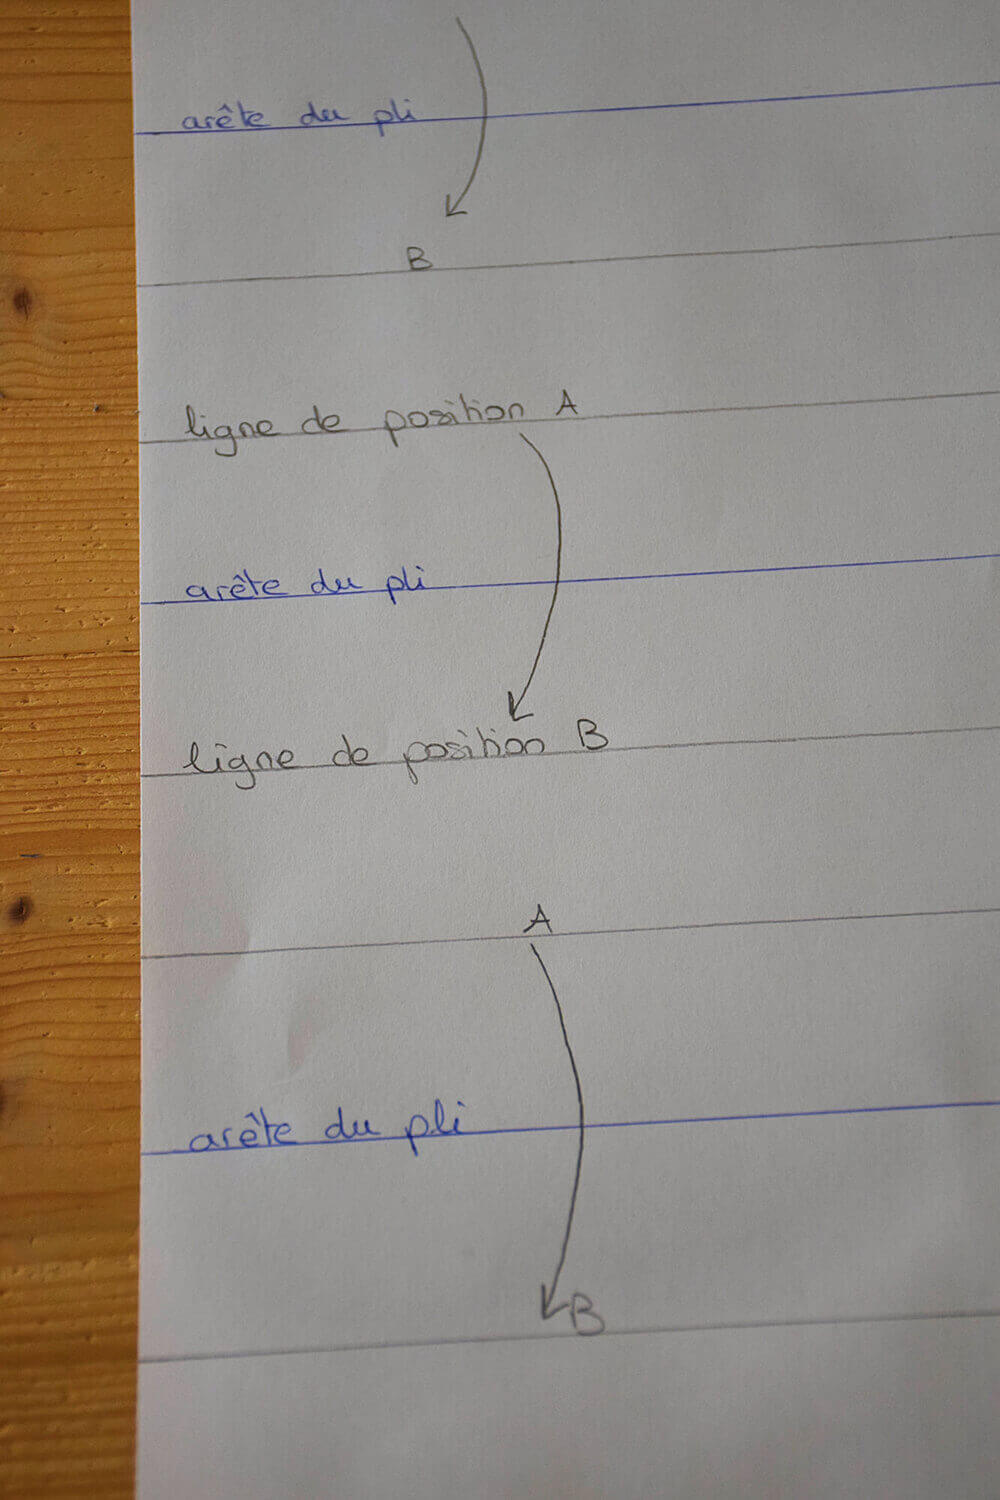 arête du pli
B
ligne de position A
arête du pli
ligne de position B
A
arête du pli
B